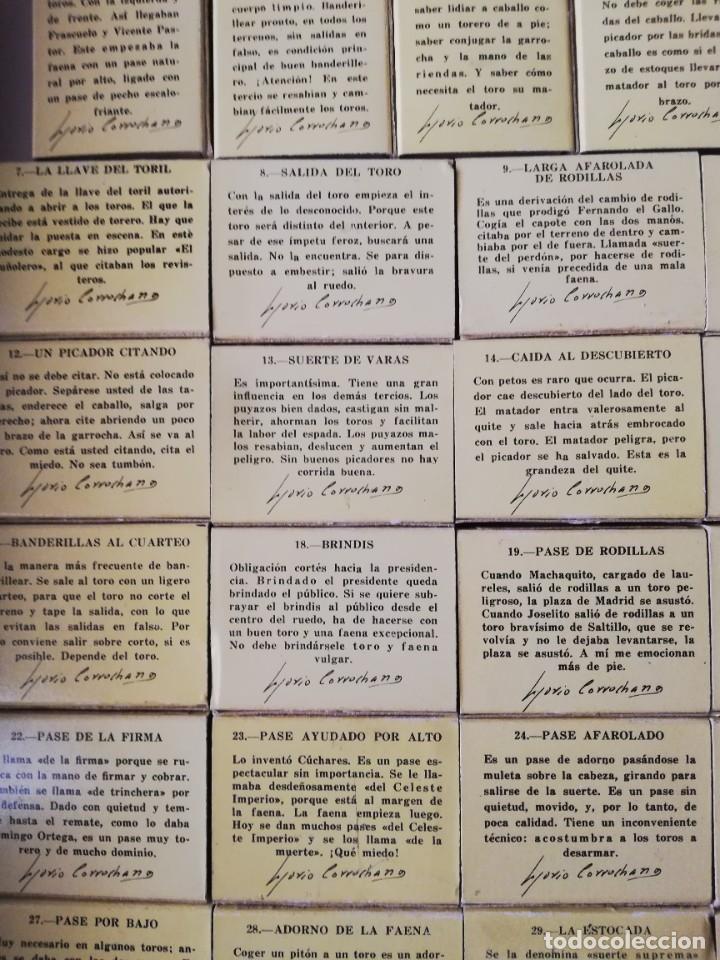 toros. Con la izquierda y
de frente. Así llegaban
Frascuelo y Vicente Pas-
tor. Este empezaba la
faena con un pase natu-
ral por alto, ligado con
un pase de pecho escalo-
friante.
Gregorio Corrochano
cuerpo limpio. Banderi-
llear pronto, en todos los
terrenos, sin salidas en
falso, es condición prin-
cipal de buen banderille-
ro. ¡Atención! En este
tercio se resabian y cam-
bian fácilmente los toros.
Gregorio Corrochano
saber lidiar a caballo co-
mo un torero de a pie;
saber conjugar la garro-
cha y la mano de las
riendas. Y saber cómo
necesita el toro su ma-
tador.
Gregorio Corrochano
No debe coger las
das del caballo. Lleva
picador por las bridas
caballo es como si el
zo de estoques llevar
matador al toro por
brazo.
7.—LA LLAVE DEL TORIL
Entrega de la llave del toril autori-
zando a abrir a los toros. El que la
recibe está vestido de torero. Hay que
cuidar la puesta en escena. En este
modesto cargo se hizo popular «El
Buñolero», al que citaban los revis-
teros.
Gregorio Corrochano
8.—SALIDA DEL TORO
Con la salida del toro empieza el in-
terés de lo desconocido. Porque este
toro será distinto del anterior. A pe-
sar de ese ímpetu feroz, buscará una
salida. No la encuentra. Se para dis-
puesto a embestir; salió la bravura
al ruedo.
Gregorio Corrochano
9.—LARGA AFAROLADA
DE RODILLAS
Es una derivación del cambio de rodi-
llas que prodigó Fernando el Gallo.
Cogía el capote con las dos manos,
citaba por el terreno de dentro y cam-
biaba por el de fuera. Llamada «suer-
te del perdón», por hacerse de rodi-
llas, si venía precedida de una mala
faena.
Gregorio Corrochano
12.—UN PICADOR CITANDO
Así no se debe citar. No está colocado
el picador. Sepárese usted de las ta-
blas, enderece el caballo, salga por
derecho; ahora cite abriendo un poco
el brazo de la garrocha. Así se va al
toro. Como está usted citando, cita el
miedo. No sea tumbón.
Gregorio Corrochano
13.—SUERTE DE VARAS
Es importantísima. Tiene una gran
influencia en los demás tercios. Los
puyazos bien dados, castigan sin mal-
herir, ahorman los toros y facilitan
la labor del espada. Los puyazos ma-
los resabian, deslucen y aumentan el
peligro. Sin buenos picadores no hay
corrida buena.
Gregorio Corrochano
14.—CAIDA AL DESCUBIERTO
Con petos es raro que ocurra. El pica-
dor cae descubierto del lado del toro.
El matador entra valerosamente al
quite y sale hacia atrás embrocado
con el toro. El matador peligra, pero
el picador se ha salvado. Esta es la
grandeza del quite.
Gregorio Corrochano
BANDERILLAS AL CUARTEO
la manera más frecuente de ban-
derillear. Se sale al toro con un ligero
cuarteo, para que el toro no corte el
terreno y tape la salida, con lo que
se evitan las salidas en falso. Por
lo conviene salir sobre corto, si es
posible. Depende del toro.
Gregorio Corrochano
18.—BRINDIS
Obligación cortés hacia la presiden-
cia. Brindado el presidente queda
brindado el público. Si se quiere sub-
rayar el brindis al público desde el
centro del ruedo, ha de hacerse con
un buen toro y una faena excepcional.
No debe brindársele toro y faena
vulgar.
Gregorio Corrochano
19.—PASE DE RODILLAS
Cuando Machaquito, cargado de lau-
reles, salió de rodillas a un toro pe-
ligroso, la plaza de Madrid se asustó.
Cuando Joselito salió de rodillas a un
toro bravísimo de Saltillo, que se re-
volvía y no le dejaba levantarse, la
plaza se asustó. A mí me emocionan
más de pie.
Gregorio Corrochano
22.—PASE DE LA FIRMA
llama «de la firma» porque se ru-
brica con la mano de firmar y cobrar.
También se llama «de trinchera» por
defensa. Dado con quietud y tem-
ple hasta el remate, como lo daba
Domingo Ortega, es un pase muy to-
rero y de mucho dominio.
Gregorio Corrochano
23.—PASE AYUDADO POR ALTO
Lo inventó Cúchares. Es un pase es-
pectacular sin importancia. Se le lla-
maba desdeñosamente «del Celeste
Imperio», porque está al margen de
la faena. La faena empieza luego.
Hoy se dan muchos pases «del Celes-
te Imperio» y se los llama «de la
muerte». ¡Qué miedo!
Gregorio Corrochano
24.—PASE AFAROLADO
Es un pase de adorno pasándose la
muleta sobre la cabeza, girando para
salirse de la suerte. Es un pase sin
quietud, movido, y, por lo tanto, de
poca calidad. Tiene un inconveniente
técnico: acostumbra a los toros a
desarmar.
Gregorio Corrochano
27.—PASE POR BAJO
Muy necesario en algunos toros; an-
28.—ADORNO DE LA FAENA
Coger un pitón a un toro es un ador-
29.—LA ESTOCADA
Se la denomina «suerte suprema»
todocoleccion.net